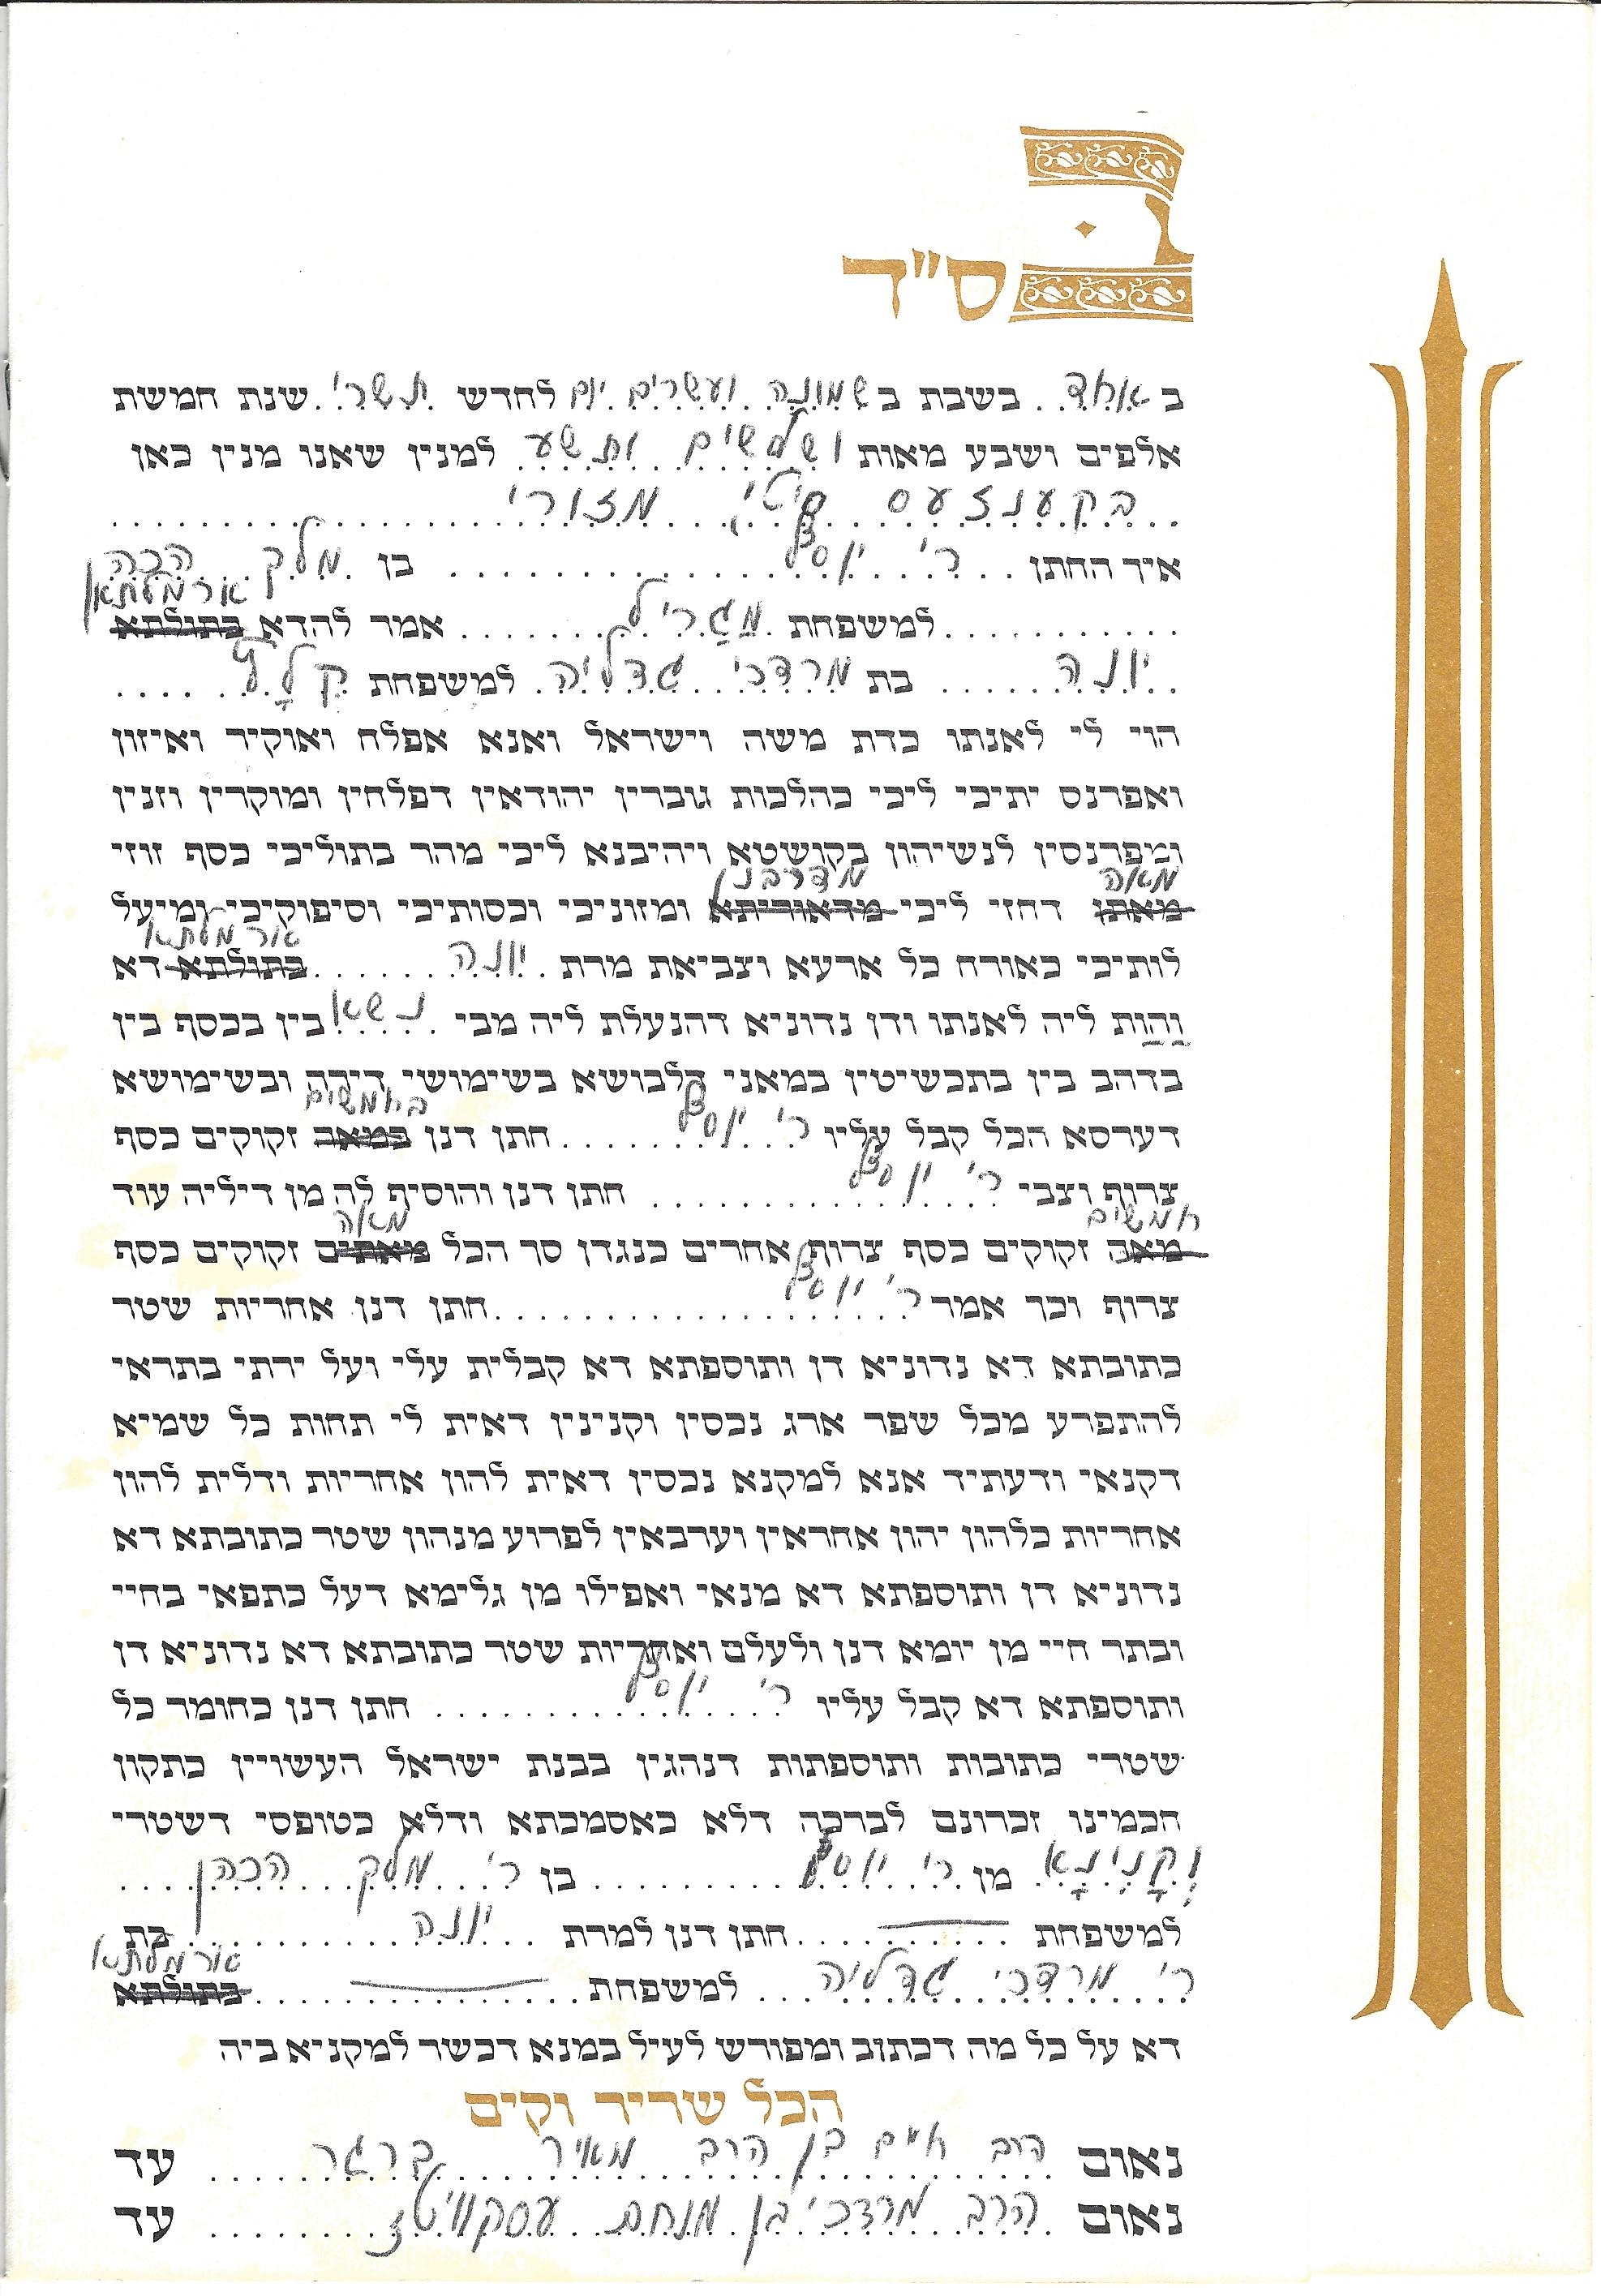 בס״ד
ב אחד בשבת ב שמונה ועשרים יום לחדש תשרי שנת חמשת
אלפים ושבע מאות ושלשים ותשע למנין שאנו מנין כאן
בקענזעס סיטי, מזורי
איך החתן ר' יוסף בן מלק הכהן
למשפחת מַגָרִיל אמר להדא בתולתא ארמלתא
יונה בת מרדכי גדליה למשפחת
הוי לי לאנתו כדת משה וישראל ואנא אפלח ואוקיר ואיזון
ואפרנס יתיכי ליכי כהלכות גוברין יהודאין דפלחין ומוקרין וזנין
ומפרנסין לנשיהון בקושטא ויהיבנא ליכי מהר בתוליכי כסף זוזי
מאתן מאה דחזי ליכי מדאוריתא מדרבנן ומזוניכי וכסותיכי וסיפוקיכי ומיעל
לותיכי כאורח כל ארעא וצביאת מרת יונה בתולתא ארמלתא דא
וַהֲוַת ליה לאנתו ודן נדוניא דהנעלת ליה מבי נשא בין בכסף בין
בדהב בין בתכשיטין במאני דלבושא בשימושי דירה ובשימושא
דערסא הכל קבל עליו ר' יוסף חתן דנן במאה בחמשים זקוקים כסף
צרוף וצבי ר' יוסף חתן דנן והוסיף לה מן דיליה עוד
מאה חמשים זקוקים כסף צרוף אחרים כנגדן סך הכל מאתים מאה זקוקים כסף
צרוף וכך אמר ר' יוסף חתן דנן אחריות שטר
כתובתא דא נדוניא דן ותוספתא דא קבלית עלי ועל ירתי בתראי
להתפרע מכל שפר ארג נכסין וקנינין דאית לי תחות כל שמיא
דקנאי ודעתיד אנא למקנא נכסין דאית להון אחריות ודלית להון
אחריות כלהון יהון אחראין וערבאין לפרוע מנהון שטר כתובתא דא
נדוניא דן ותוספתא דא מנאי ואפילו מן גלימא דעל כתפאי בחיי
ובתר חיי מן יומא דנן ולעלם ואחריות שטר כתובתא דא נדוניא דן
ותוספתא דא קבל עליו ר' יוסף חתן דנן כחומר כל
שטרי כתובות ותוספתות דנהגין בבנת ישראל העשויין כתקון
חכמינו זכרונם לברכה דלא כאסמכתא ודלא כטופסי דשטרי
וְקָנִינָא מן ר' יוסף בן ר' מלק הכהן
למשפחת חתן דנן למרת יונה בת
ר' מרדכי גדליה למשפחת בתולתא ארמלתא
דא על כל מה דכתוב ומפורש לעיל במנא דכשר למקניא ביה
הכל שריר וקים
נאום הרב חיים בן הרב מאיר ברגר עד
נאום הרב מרדכי בן מנחם עסקוויטז עד